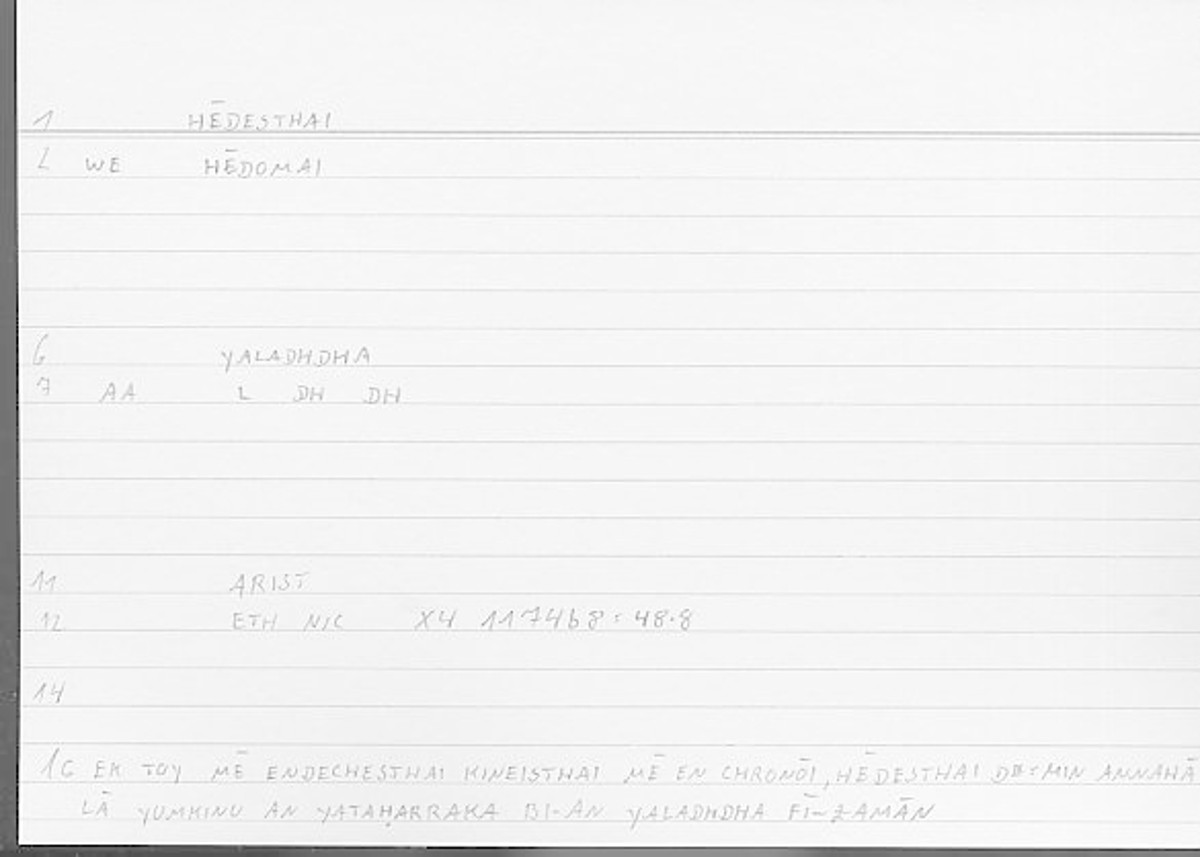 1 HĒDESTHAI
2 WE HĒDOMAI
6 YALADHDHA
7 AA L DH DH
11 ARIST
12 ETH NIC X4 1174b8:48.8
14
16 EK TOY MĒ ENDECHESTHAI KINEISTHAI MĒ EN CHRONŌI, HĒDESTHAI DE:MIN ANNAHĀ
LĀ YUMKINU AN YATAḤARRAKA BI-AN YALADHDHA FĪ-ZAMĀN